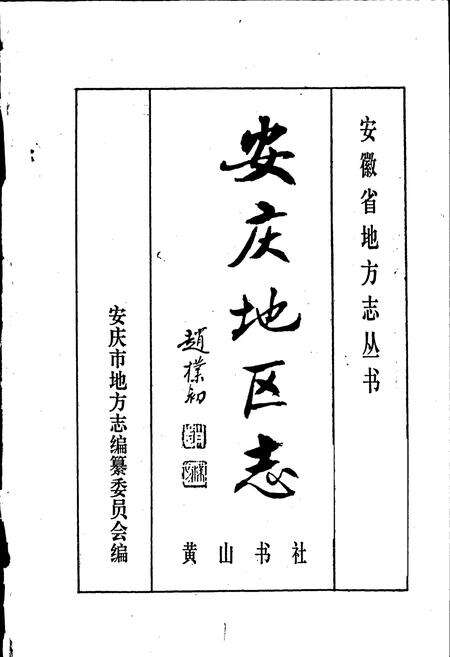 安徽省地方志丛书
安庆地区志
趙樸初
黄山书社
安庆市地方志编纂委员会编